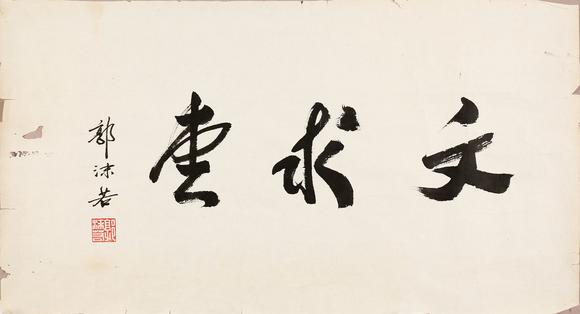 文求堂
郭沫若